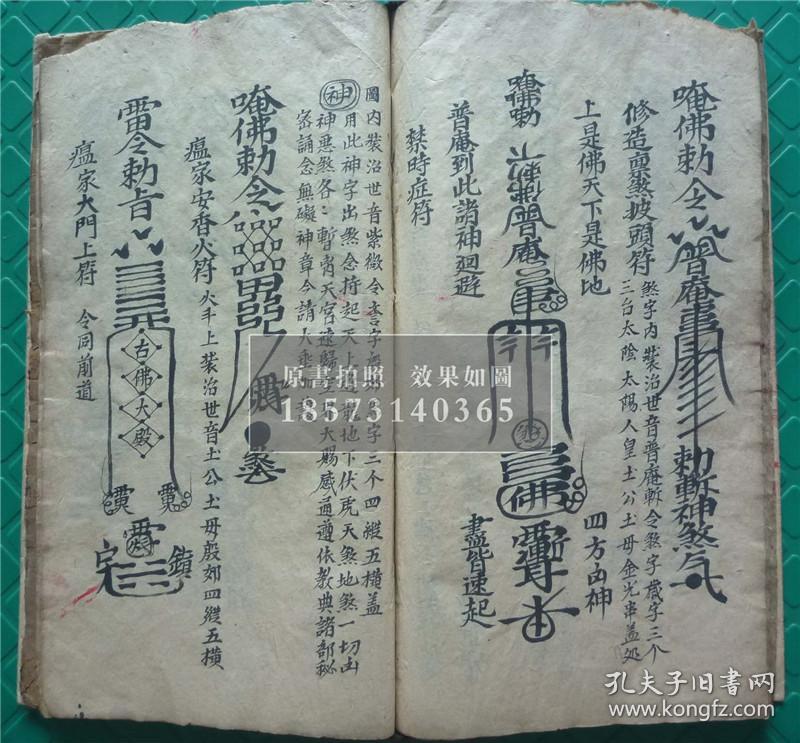 唵佛勅令 普庵 勅斬神煞气
修造禀煞披頭符 煞字内裝治世音普庵斬令煞字歲字三个
三台太陰太陽人皇土公土母金光串盖处
上是佛天下是佛地
四方凶神
唵佛勅 普庵 佛
普庵到此諸神廻避
盡皆速起
禁時症符
圖内裝治世音紫微令 字三个四縱五横盖
神 用此神字出煞念持起天上 地下伏虎天煞地煞一切凶
神悪煞各々暫 天宮速歸 大賜感通遵依教典諸部秘
密誦念無礙神章今請大乘
唵佛勅令
瘟家安香火符 火手上裝治世音土公土母殷郊四縱五横
雷令勅旨 古佛大殿 鎮宅
瘟家大門上符 令同前道
原書拍照 效果如圖
18573140365
孔夫子旧書网
www.kongfz.com